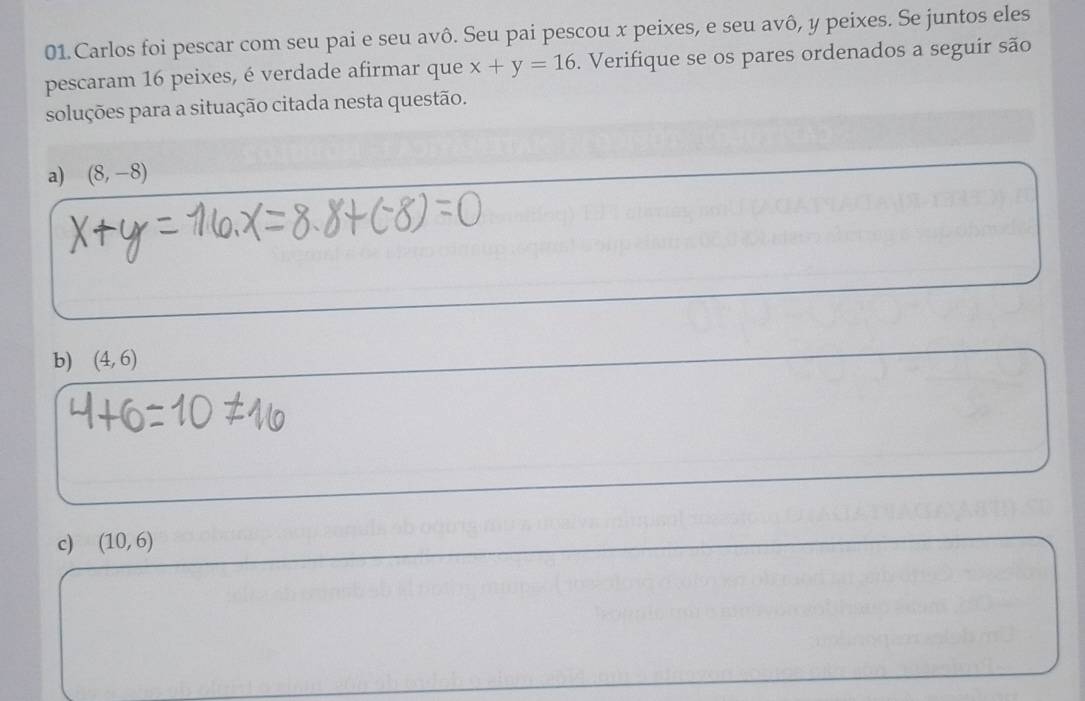 01. Carlos foi pescar com seu pai e seu avô. Seu pai pescou x peixes, e seu avô, y peixes. Se juntos eles
pescaram 16 peixes, é verdade afirmar que x + y = 16. Verifique se os pares ordenados a seguir são
soluções para a situação citada nesta questão.
a) (8, −8)
x+y=16.x=8.8+(-8)=0
b) (4, 6)
4+6=10≠16
c) (10, 6)